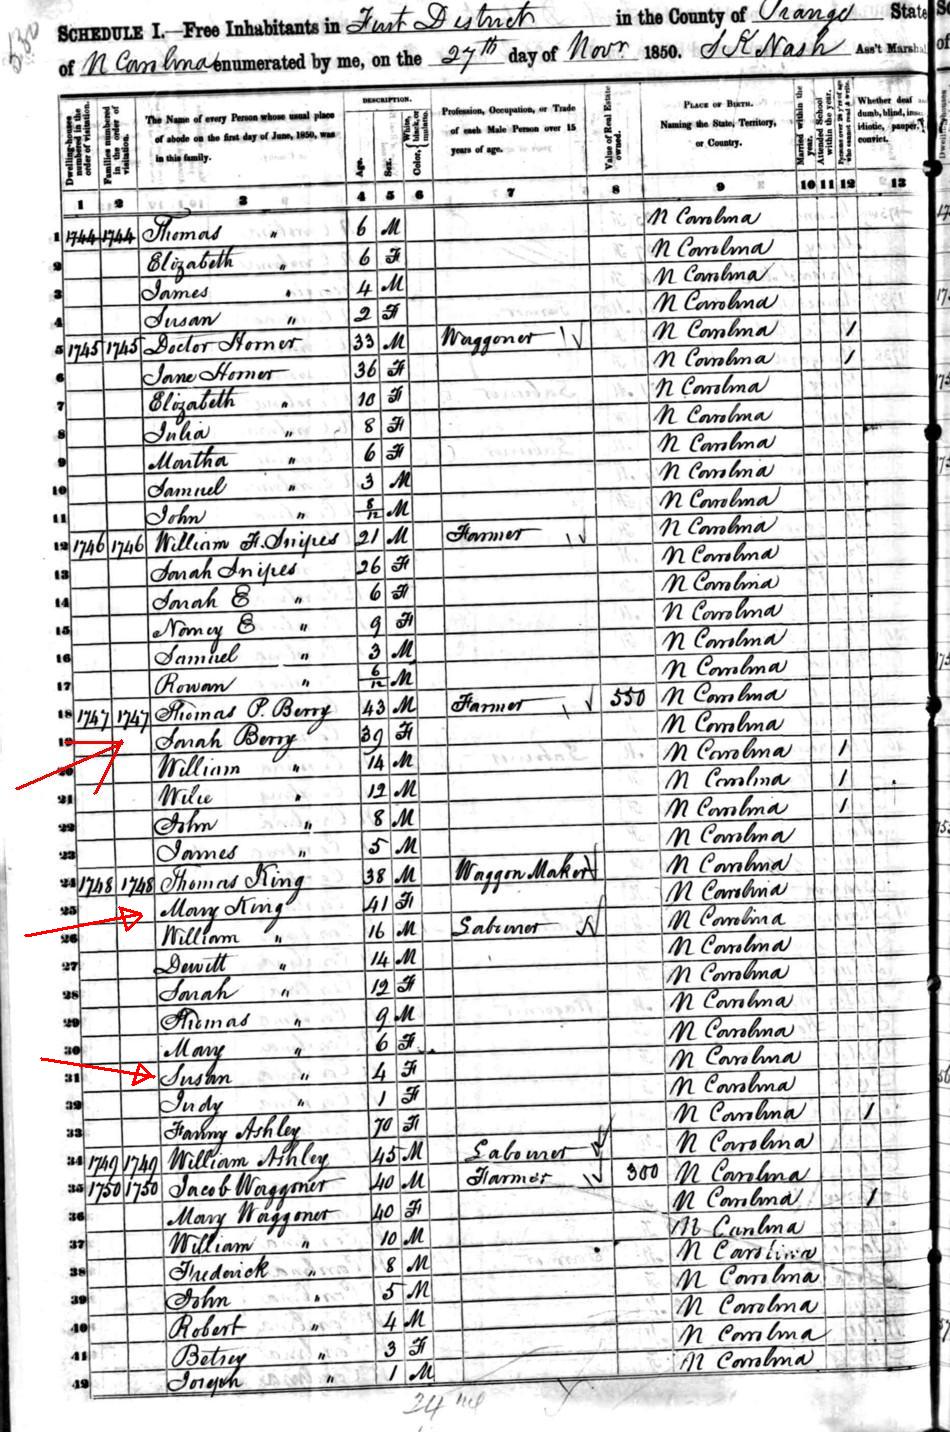 230
SCHEDULE I.—Free Inhabitants in First District in the County of Orange State
of N Carolina enumerated by me, on the 27th day of Novr 1850. S K Nash Ass't Marshal
Dwelling-houses numbered in the order of visitation.
Families numbered in the order of visitation.
The Name of every Person whose usual place of abode on the first day of June, 1850, was in this family.
DESCRIPTION.
Age.
Sex.
Color, { White, black, or mulatto.
Profession, Occupation, or Trade of each Male Person over 15 years of age.
Value of Real Estate owned.
PLACE OF BIRTH. Naming the State, Territory, or Country.
Married within the year.
Attended School within the year.
Persons over 20 y'rs of age who cannot read & write.
Whether deaf and dumb, blind, insane, idiotic, pauper, or convict.
1 2 3 4 5 6 7 8 9 10 11 12 13
1 1744 1744 Thomas " 6 M N Carolina
2 Elizabeth " 6 F N Carolina
3 James " 4 M N Carolina
4 Susan " 2 F N Carolina
5 1745 1745 Doctor Horner 33 M Waggoner N Carolina 1
6 Jane Horner 36 F N Carolina 1
7 Elizabeth " 10 F N Carolina
8 Julia " 8 F N Carolina
9 Martha " 6 F N Carolina
10 Samuel " 3 M N Carolina
11 John " 8/12 M N Carolina
12 1746 1746 William F. Snipes 21 M Farmer N Carolina
13 Sarah Snipes 26 F N Carolina
14 Sarah E " 6 F N Carolina
15 Nancy E " 9 F N Carolina
16 Samuel " 3 M N Carolina
17 Rowan " 6/12 M N Carolina
18 1747 1747 Thomas P. Berry 43 M Farmer 550 N Carolina
19 Sarah Berry 39 F N Carolina
20 William " 14 M N Carolina 1
21 Wilie " 12 M N Carolina 1
22 John " 8 M N Carolina 1
23 James " 5 M N Carolina
24 1748 1748 Thomas King 38 M Waggon Maker N Carolina
25 Mary King 41 F N Carolina
26 William " 16 M Labourer N Carolina
27 Dewitt " 14 M N Carolina
28 Sarah " 12 F N Carolina
29 Thomas " 9 M N Carolina
30 Mary " 6 F N Carolina
31 Susan " 4 F N Carolina
32 Judy " 1 F N Carolina
33 Fanny Ashley 70 F N Carolina 1
34 1749 1749 William Ashley 45 M Labourer N Carolina
35 1750 1750 Jacob Waggoner 40 M Farmer 300 N Carolina
36 Mary Waggoner 40 F N Carolina 1
37 William " 10 M N Carolina
38 Frederick " 8 M N Carolina
39 John " 5 M N Carolina
40 Robert " 4 M N Carolina
41 Betsey " 3 F N Carolina
42 Joseph " 1 M N Carolina